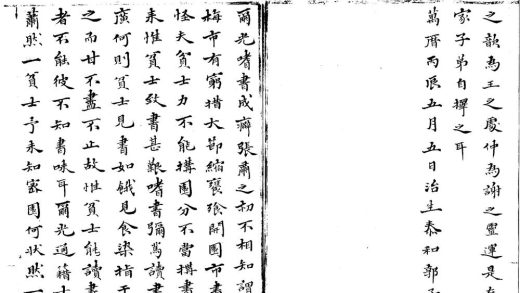 之歆為王之處仲為謝之靈運是
家子弟自擇之耳
萬曆丙辰五月五日治生泰和郭
爾光嗜書成癖張肅之初不相知謂
梅市有窮措大節縮饔飧開園市書
怪夫貧士力不能搆園分不當搆書
惟貧士致書甚艱嗜書彌篤讀書
廣何則貧士見書如餓見食染指于
之而甘不盡不止故惟貧士能讀書
者不能彼不知書味耳爾光通籍
蕭然一貧士予未知密園何狀然一